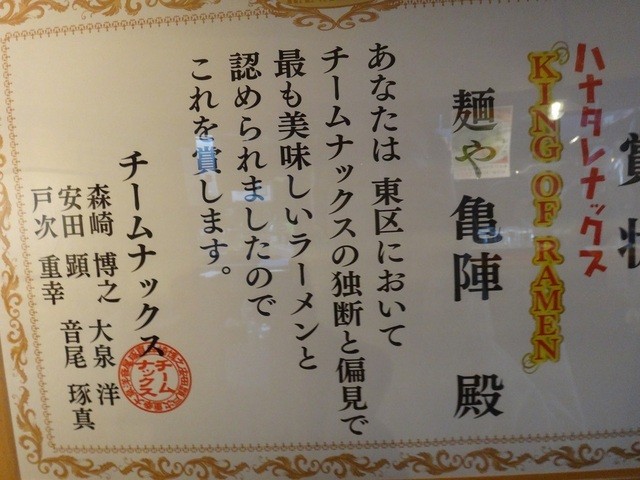 賞状
ハナタレナックス
KING OF RAMEN
麺や 亀陣 殿
あなたは 東区において
チームナックスの独断と偏見で
最も美味しいラーメンと
認められましたので
これを賞します。
チームナックス
森崎 博之 大泉 洋
安田 顕 音尾 琢真
戸次 重幸
チーム
ナックス